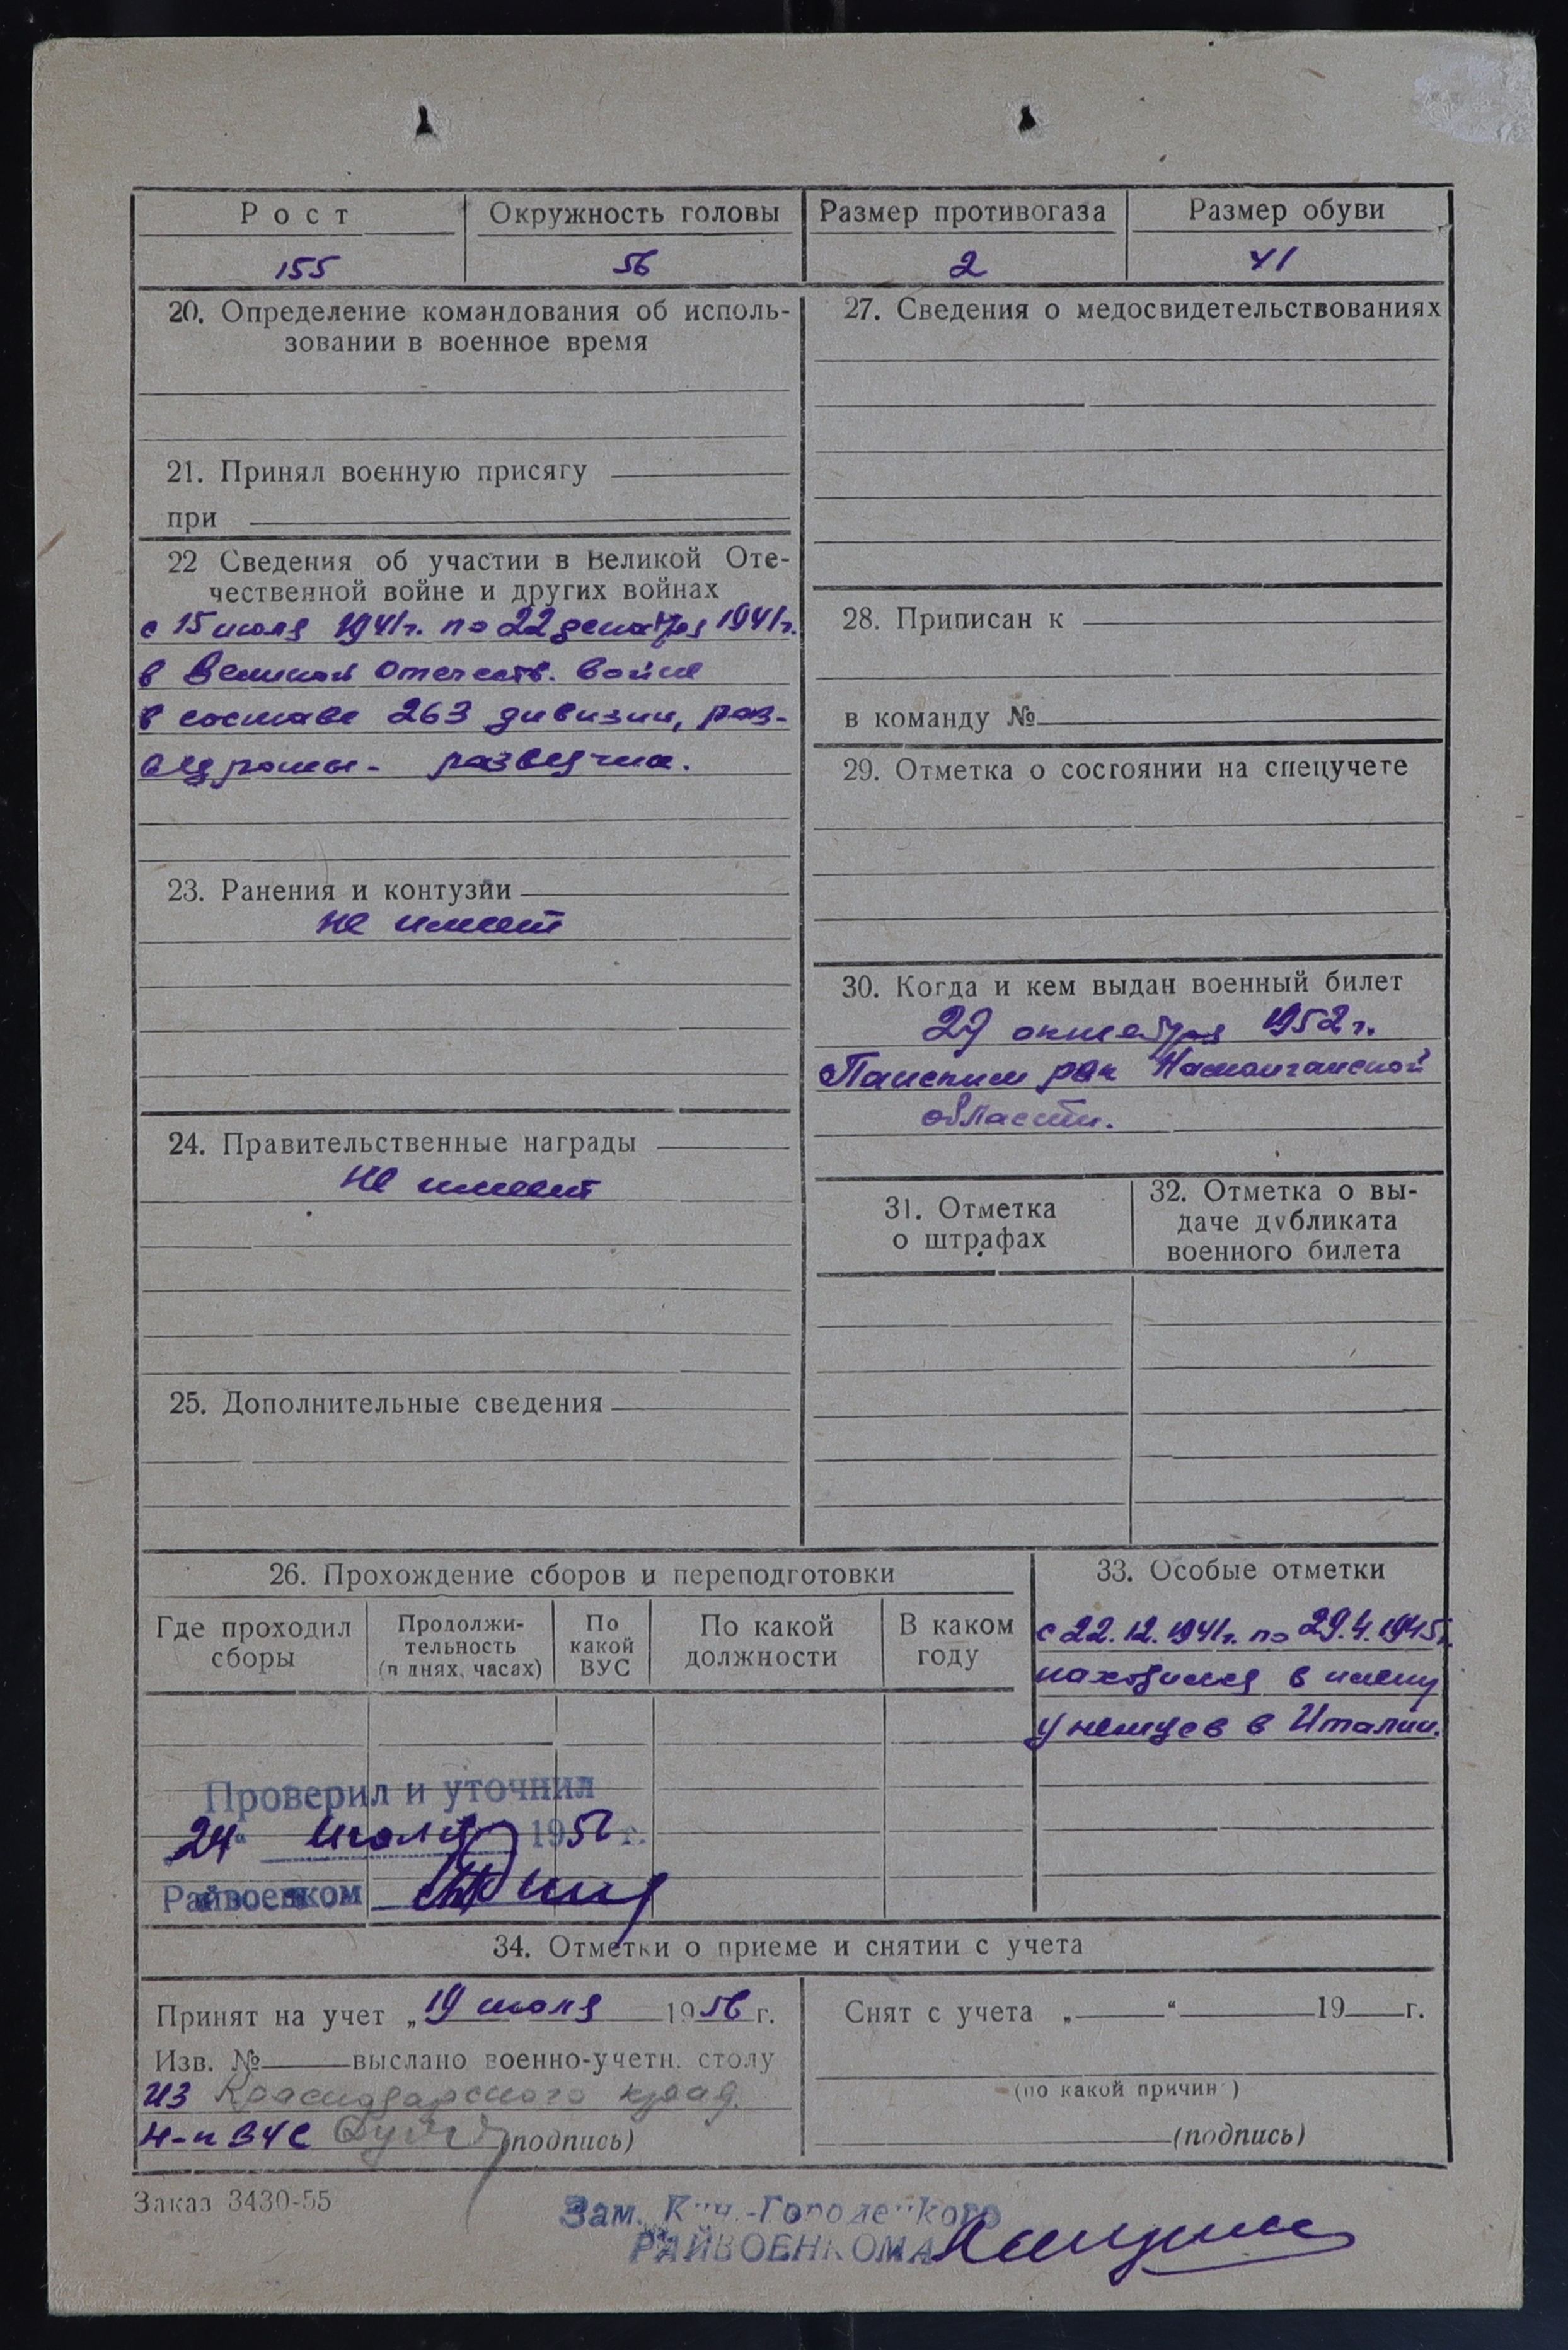 Рост
Окружность головы
Размер противогаза
Размер обуви
155
56
2
41
20. Определение командования об исполь-
зовании в военное время
21. Принял военную присягу
при
22 Сведения об участии в Великой Оте-
чественной войне и других войнах
с 15 июля 1941г. по 22 декабря 1941г.
в Великой Отечеств. войне
в составе 263 дивизии, раз-
ведроты - разведчик.
23. Ранения и контузии
не имеет
24. Правительственные награды
не имеет
25. Дополнительные сведения
27. Сведения о медосвидетельствованиях
28. Приписан к
в команду №
29. Отметка о состоянии на спецучете
30. Когда и кем выдан военный билет
27 октября 1952 г.
Папским рвк Наманганской
области.
31. Отметка
о штрафах
32. Отметка о вы-
даче дубликата
военного билета
26. Прохождение сборов и переподготовки
Где проходил
сборы
Продолжи-
тельность
(в днях, часах)
По
какой
ВУС
По какой
должности
В каком
году
Проверил и уточнил
„24“ июля 1956 г.
Райвоенком
33. Особые отметки
с 22.12.1941г. по 29.4.1945г.
находился в плену
у немцев в Италии.
34. Отметки о приеме и снятии с учета
Принят на учет „19 июля 1956 г.
Изв. № выслано военно-учетн. столу
из Краснодарского края.
Н-к ВУС (подпись)
Снят с учета „ “ 19 г.
(по какой причин )
(подпись)
Заказ 3430-55
Зам. К -Городецкого
РАЙВОЕНКОМА